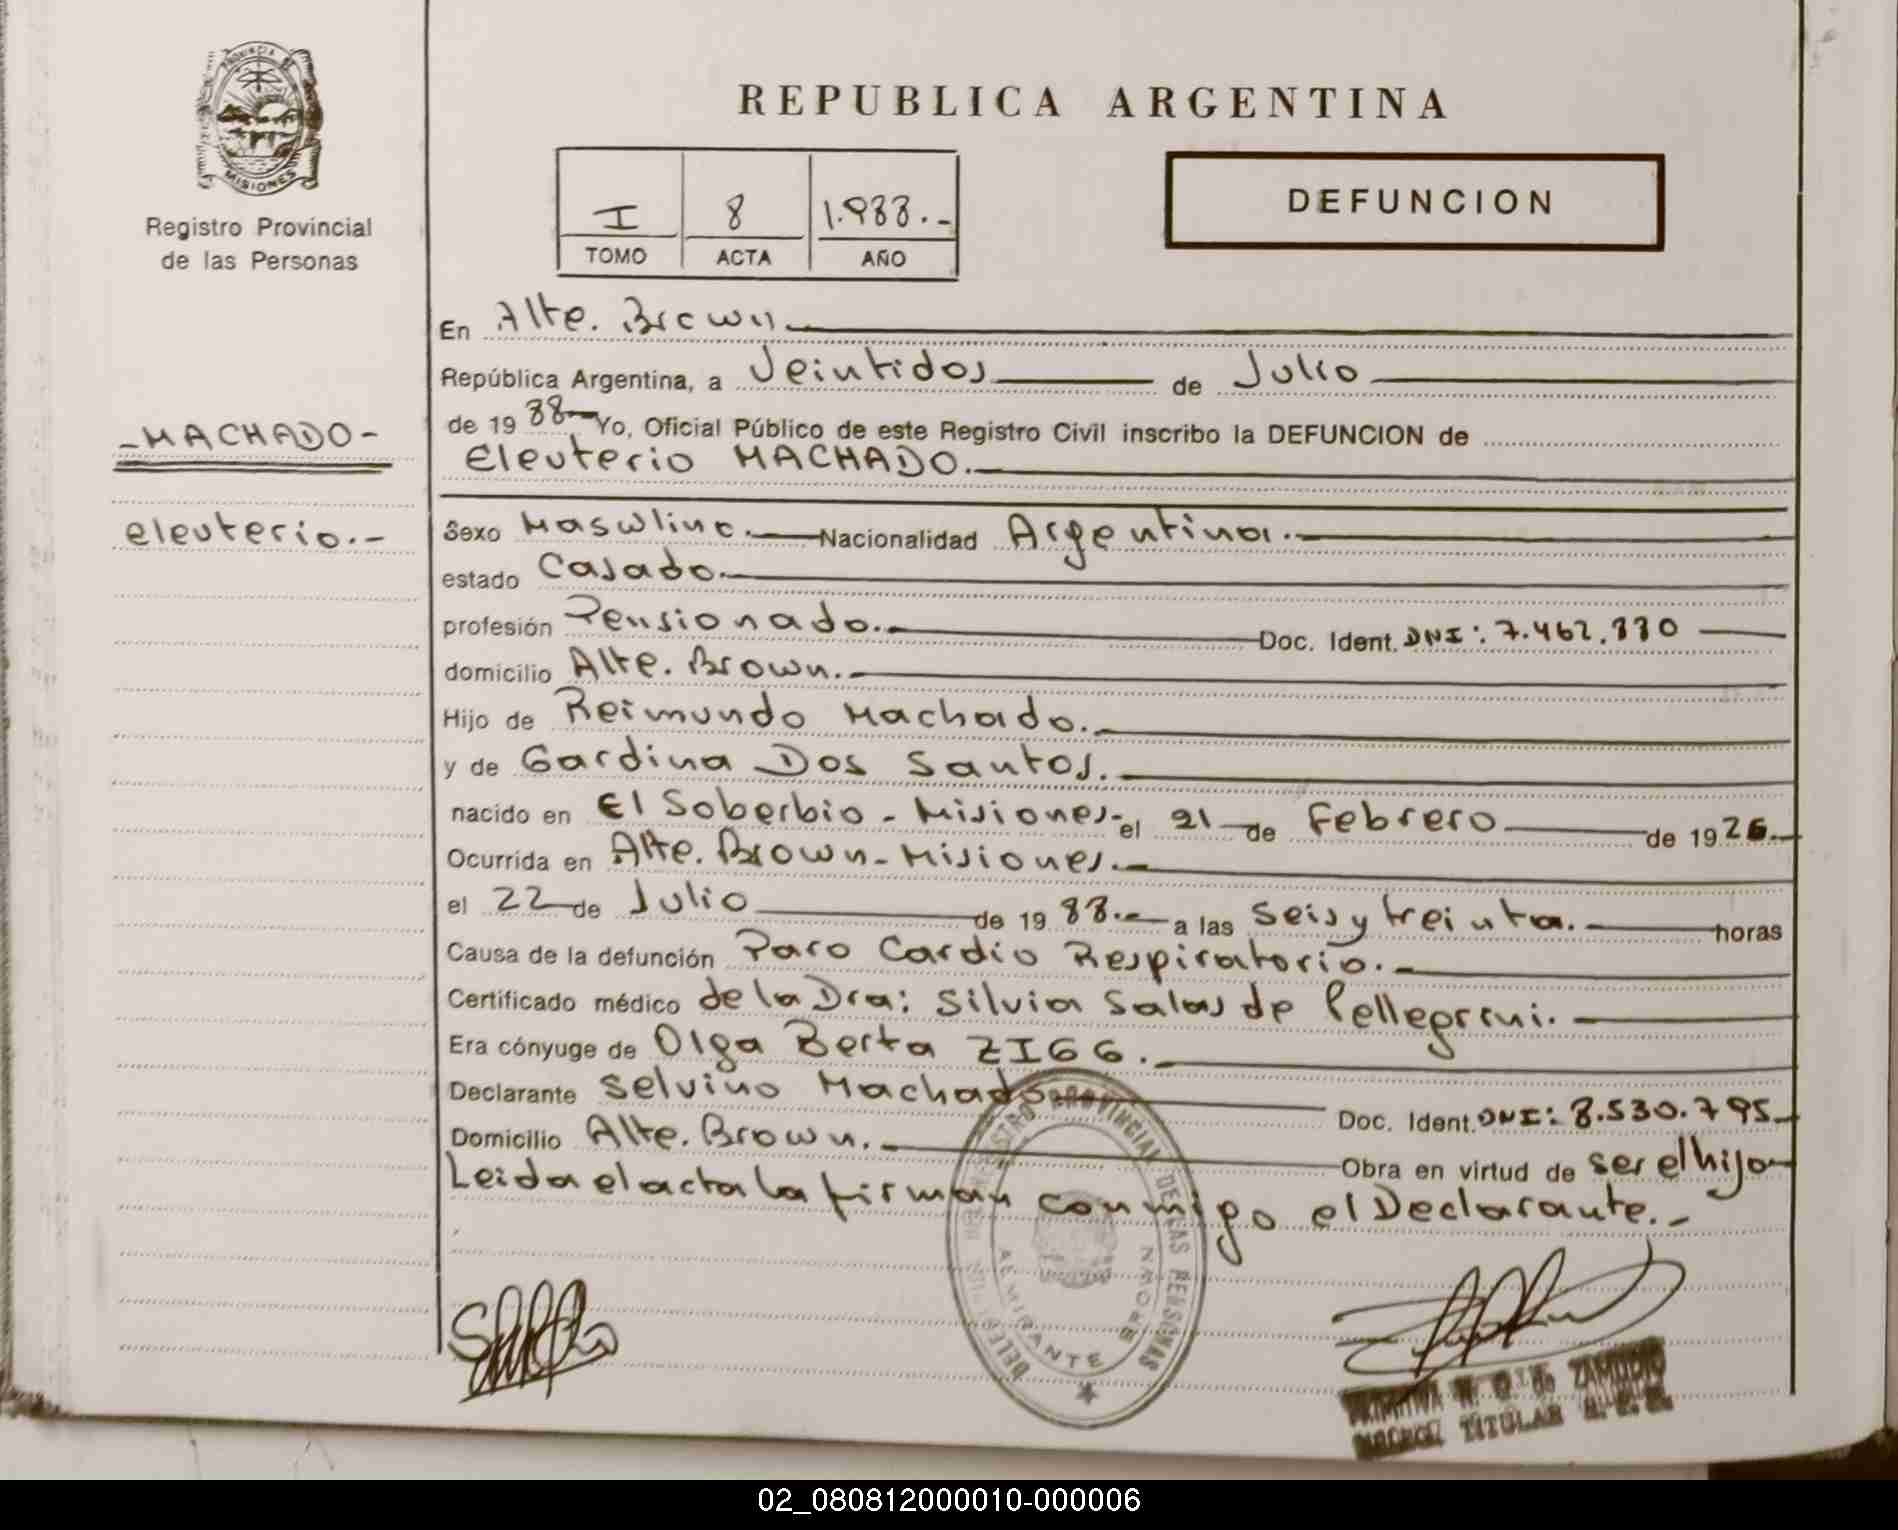 PROVINCIA DE
MISIONES
Registro Provincial
de las Personas
REPUBLICA ARGENTINA
I 8 1.988.-
TOMO ACTA AÑO
DEFUNCION
En Alte. Brown.
República Argentina, a Veintidos de Julio
de 1988 Yo, Oficial Público de este Registro Civil inscribo la DEFUNCION de
-MACHADO-
Eleuterio MACHADO.
Eleuterio.-
Sexo Masculino. Nacionalidad Argentina.
estado Casado.
profesión Pensionado. Doc. Ident. DNI: 7.462.830
domicilio Alte. Brown.
Hijo de Reimundo Machado.
y de Gardina Dos Santos.
nacido en El Soberbio - Misiones- el 21 de Febrero de 1926.
Ocurrida en Alte. Brown-Misiones.
el 22 de Julio de 1988.- a las Seis y treinta. horas
Causa de la defunción Paro Cardio Respiratorio.-
Certificado médico de la Dra: Silvia Salas de Pellegrini.
Era cónyuge de Olga Berta ZIGG.
Declarante Selvino Machado Doc. Ident. DNI: 8.530.795
Domicilio Alte. Brown. Obra en virtud de ser el hijo
Leida el acta la firman conmigo el Declarante.-
REGISTRO PROVINCIAL DE LAS PERSONAS
ALMIRANTE BROWN
ZAMUDIO
TITULAR
02_080812000010-000006